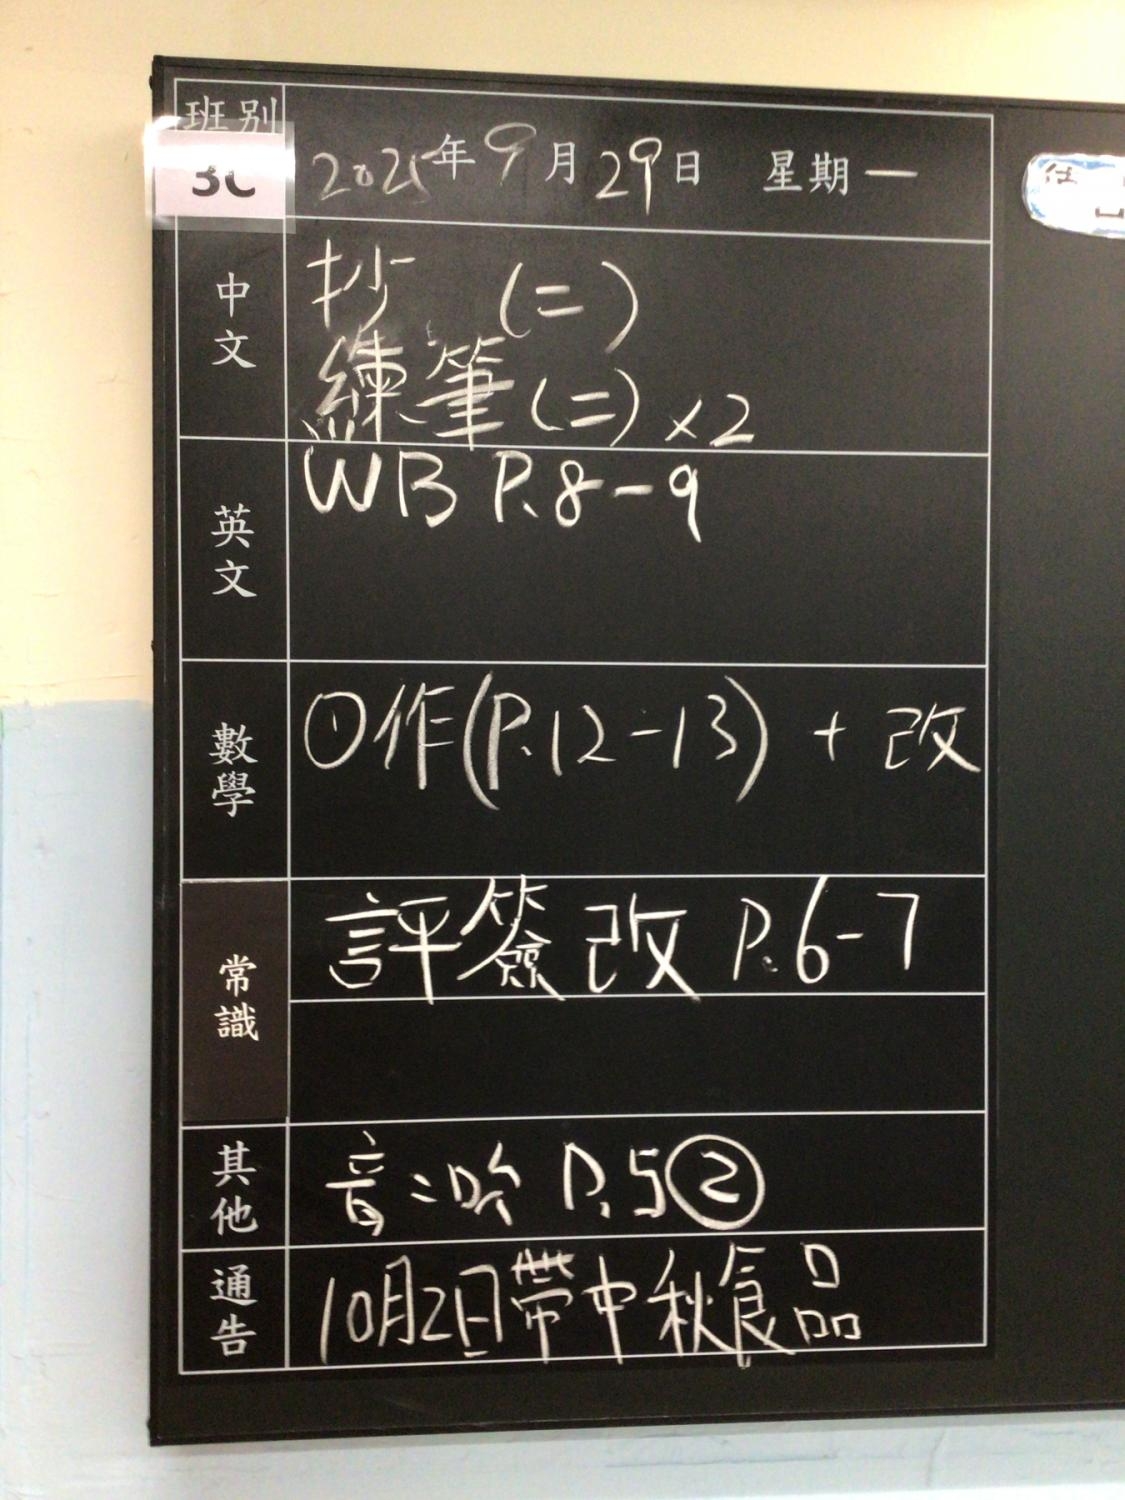 班別
3C
2025年9月29日 星期一
中文
抄 (二)
練筆(二)×2
英文
WB P.8-9
數學
①作(P.12-13) + 改
常識
評簽改 P.6-7
其他
音:吟 P.5②
通告
10月2日帶中秋食品